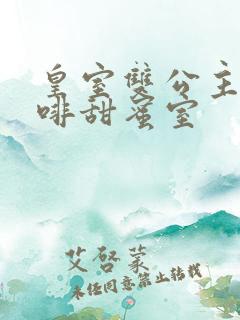 皇室雙公主
啡甜蜜室
艾啓蒙
未经同意禁止转载